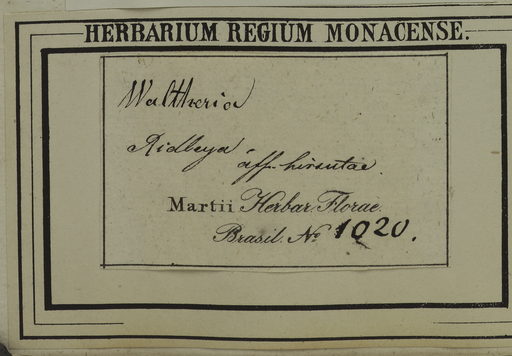 HERBARIUM REGIUM MONACENSE.
Waltheria
Riedleya aff. hirsutae.
Martii Herbar. Florae
Brasil. No. 1020.